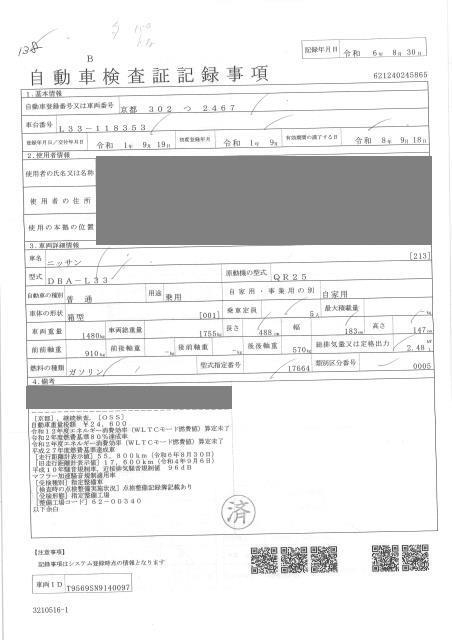 138
B
自動車検査証記録事項
記録年月日 令和 6年 8月 30日
621240245865
1.基本情報
自動車登録番号又は車両番号 京都 302 つ 2467
車台番号 L33-118353
登録年月日/交付年月日 令和 1年 9月 19日 初度登録年月 令和 1年 9月 有効期間の満了する日 令和 8年 9月 18日
2.使用者情報
使用者の氏名又は名称
使用者の住所
使用の本拠の位置
3.車両詳細情報
車名 ニッサン [213]
型式 DBA-L33 原動機の型式 QR25
自動車の種別 普通 用途 乗用 自家用・事業用の別 自家用
車体の形状 箱型 [001] 乗車定員 5人 最大積載量 -kg
車両重量 1480kg 車両総重量 1755kg 長さ 488cm 幅 183cm 高さ 147cm
前前軸重 910kg 前後軸重 -kg 後前軸重 -kg 後後軸重 570kg 総排気量又は定格出力 2.48 kW L
燃料の種類 ガソリン 型式指定番号 17664 類別区分番号 0005
4.備考
[京都],継続検査,[OSS]
自動車重量税額 ¥24,600
令和12年度エネルギー消費効率(WLTCモード燃費値)算定未了
令和2年度燃費基準80%達成車
令和2年度エネルギー消費効率(WLTCモード燃費値)算定未了
平成27年度燃費基準達成車
[走行距離計表示値]55,800km(令和6年8月30日)
[旧走行距離計表示値]17,600km(令和4年9月6日)
平成10年騒音規制車、近接排気騒音規制値 96dB
マフラー加速騒音規制適用車
[受検種別]指定整備車
[検査時の点検整備実施状況]点検整備記録簿記載あり
[受検形態]指定整備工場
[整備工場コード]62-00340
以下余白
済
【注意事項】
記録事項はシステム登録時点の情報となります
車両ID T9569SN9140097
3210516-1